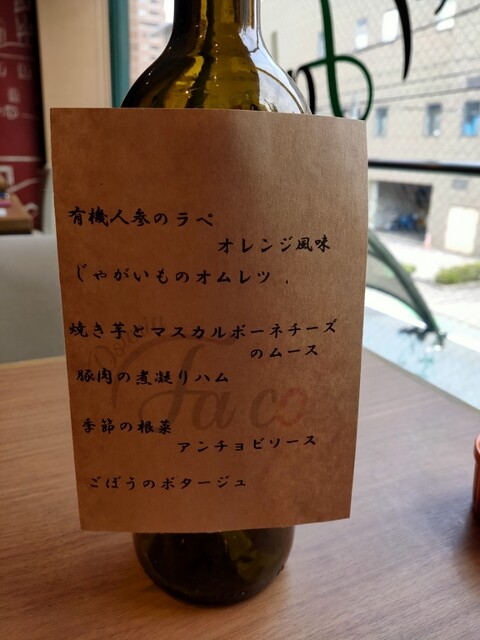 有機人参のラペ
オレンジ風味
じゃがいものオムレツ
焼き芋とマスカルポーネチーズ
のムース
豚肉の煮凝りハム
Faco
季節の根菜
アンチョビソース
ごぼうのポタージュ